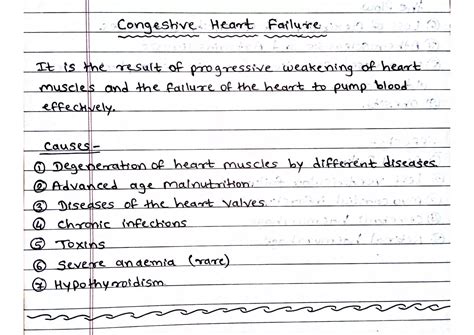 Congestive Heart Failure
It is the result of progressive weakening of heart
muscles and the failure of the heart to pump blood
effectively.
Causes:-
① Degeneration of heart muscles by different diseases.
② Advanced age malnutrition.
③ Diseases of the heart valves.
④ Chronic infections
⑤ Toxins
⑥ Severe anaemia (rare)
⑦ Hypothyroidism